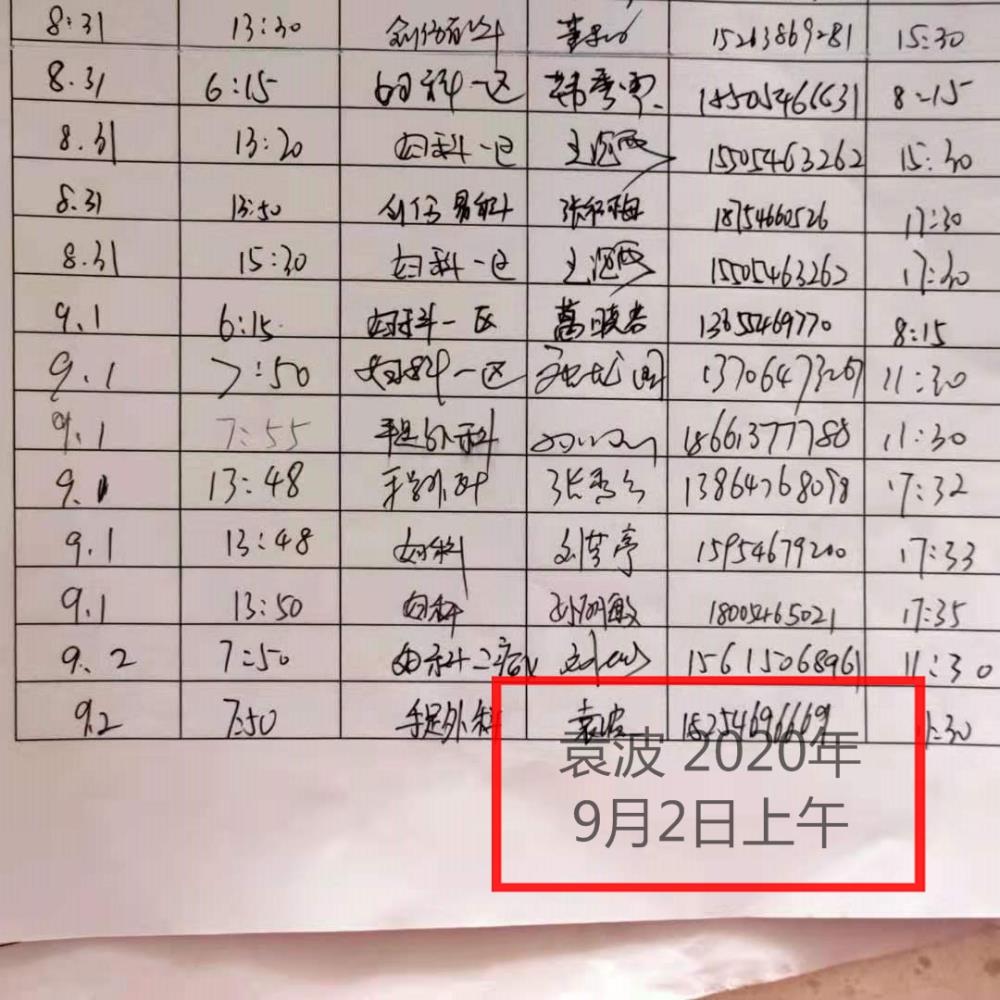 8:31 13:30 15263869281 15:30
8.31 6:15 妇科一区 18505461631 8:15
8.31 13:20 妇科一区 15054463262 15:30
8.31 13:50 张红梅 18754660526 17:30
8.31 15:30 妇科一区 15054463262 17:30
9.1 6:15 妇科一区 葛晓岩 8:15
9.1 7:50 妇科一区 13706473267 11:30
9.1 7:55 手足外科 18661377788 11:30
9.1 13:48 手足外科 张秀 13864768098 17:32
9.1 13:48 妇科 刘梦亭 15954679200 17:33
9.1 13:50 妇科 18005465021 17:35
9.2 7:50 妇科二病区 15615068961 11:30
9.2 7:50 手足外科 袁波 15254696669 11:30
袁波 2020年
9月2日上午